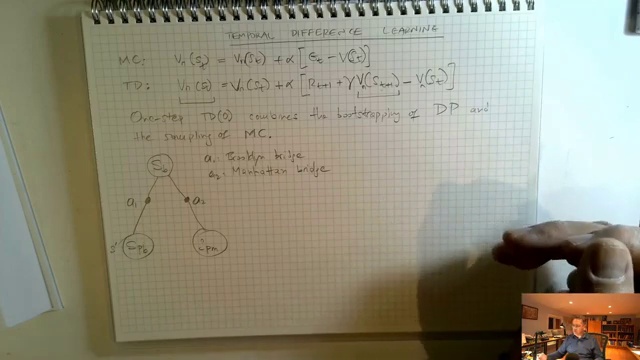 TEMPORAL DIFFERENCE LEARNING
MC: Vπ(St) = Vπ(St) + α [Gt − V(St)]
TD: Vπ(S) = Vπ(St) + α [Rt+1 + γ Vπ(St+1) − Vπ(St)]
One-step TD(0) combines the bootstrapping of DP and
the sampling of MC.
S0
a1: Brooklyn bridge
a2: Manhattan bridge
a1
a2
S'